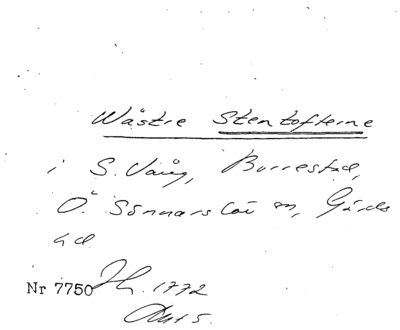 Wästre Stentofterne
i S. Vång, Borrestad,
Ö. Sönnarslöv sn, Gärds
hd
Nr 7750 Jh. 1772
Akt 5.